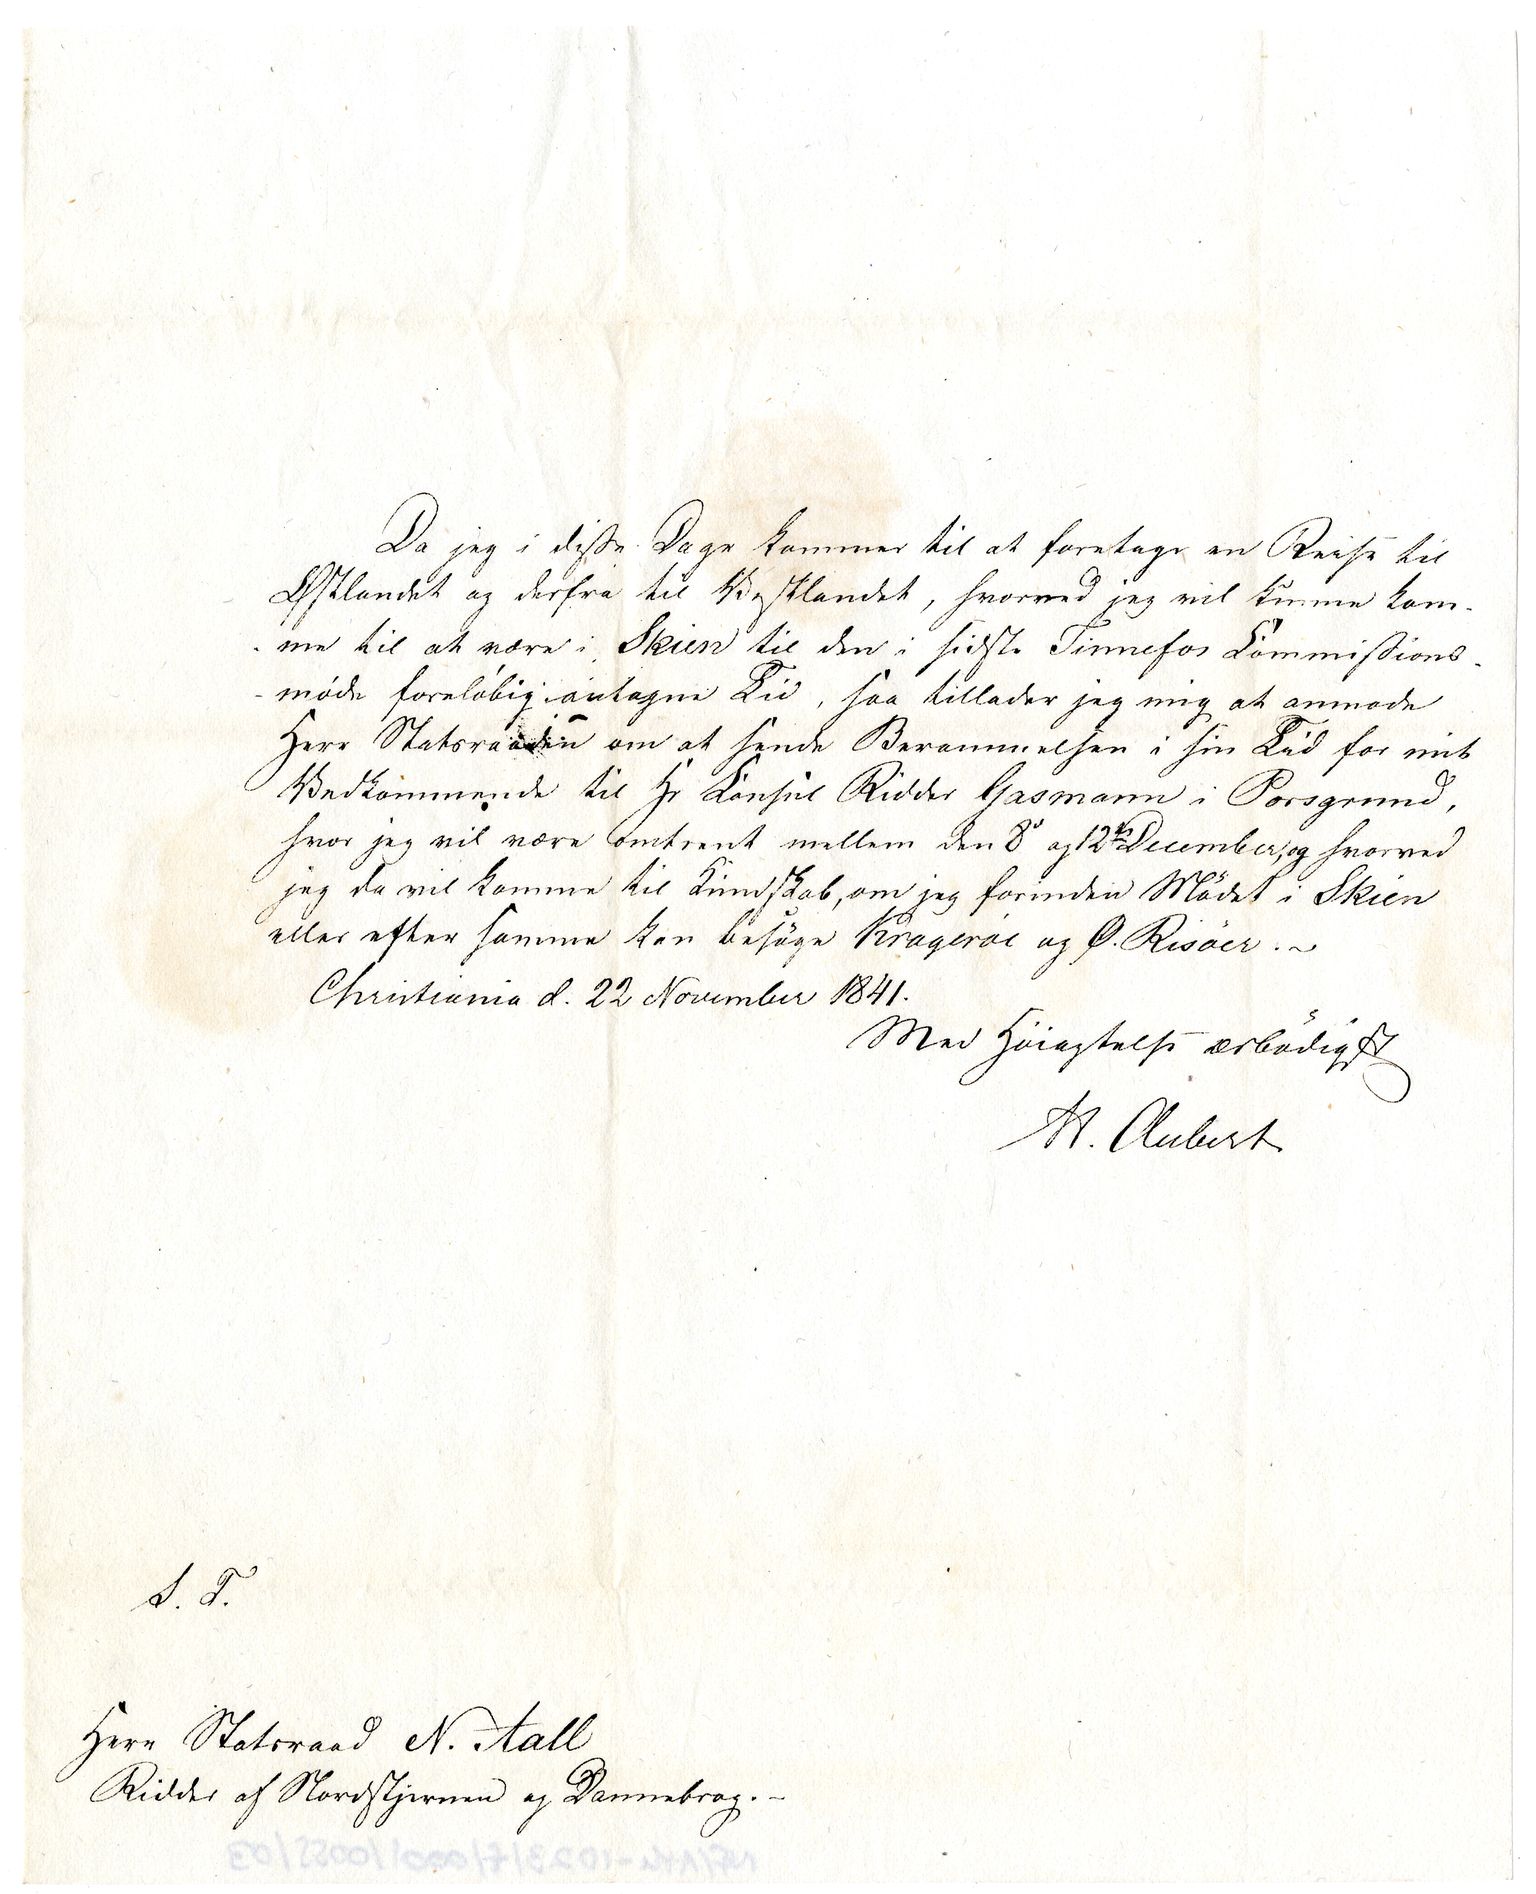 Da jeg i disse Dage kommer til at foretage en Reise til
Østlandet og derfra til Vestlandet, hvorved jeg vil kunne kom-
-me til at være i Skien til den i sidste Tinnefos Commissions-
-møde foreløbig antagne Tid, saa tillader jeg mig at anmode
Herr Statsraaden om at sende Berammelsen i sin Tid for mit
Vedkommende til Hr Consul Ridder Gasmann i Porsgrund,
hvor jeg vil være omtrent mellem den 8de og 12te December, og hvorved
jeg da vil komme til Kundskab, om jeg forinden Mödet i Skien
eller efter samme kan besöge Krageröe og Ø. Risöer.~
Christiania d. 22 November 1841.
Med Höiagtelse ærbödigst
H. Aubert
S. T.
Herr Statsraad N. Aall
Ridder af Nordstjernen og Dannebrog.-